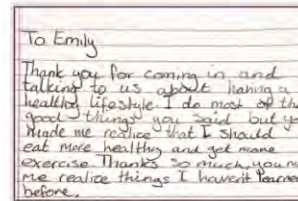 To Emily
Thank you for coming in and
talking to us about having a
healthy lifestyle. I do most of the
good things you said but yo
made me realice that I should
eat more healthy and get more
exercise Thanks so much, you ma
me realize things I haven't learned
before.